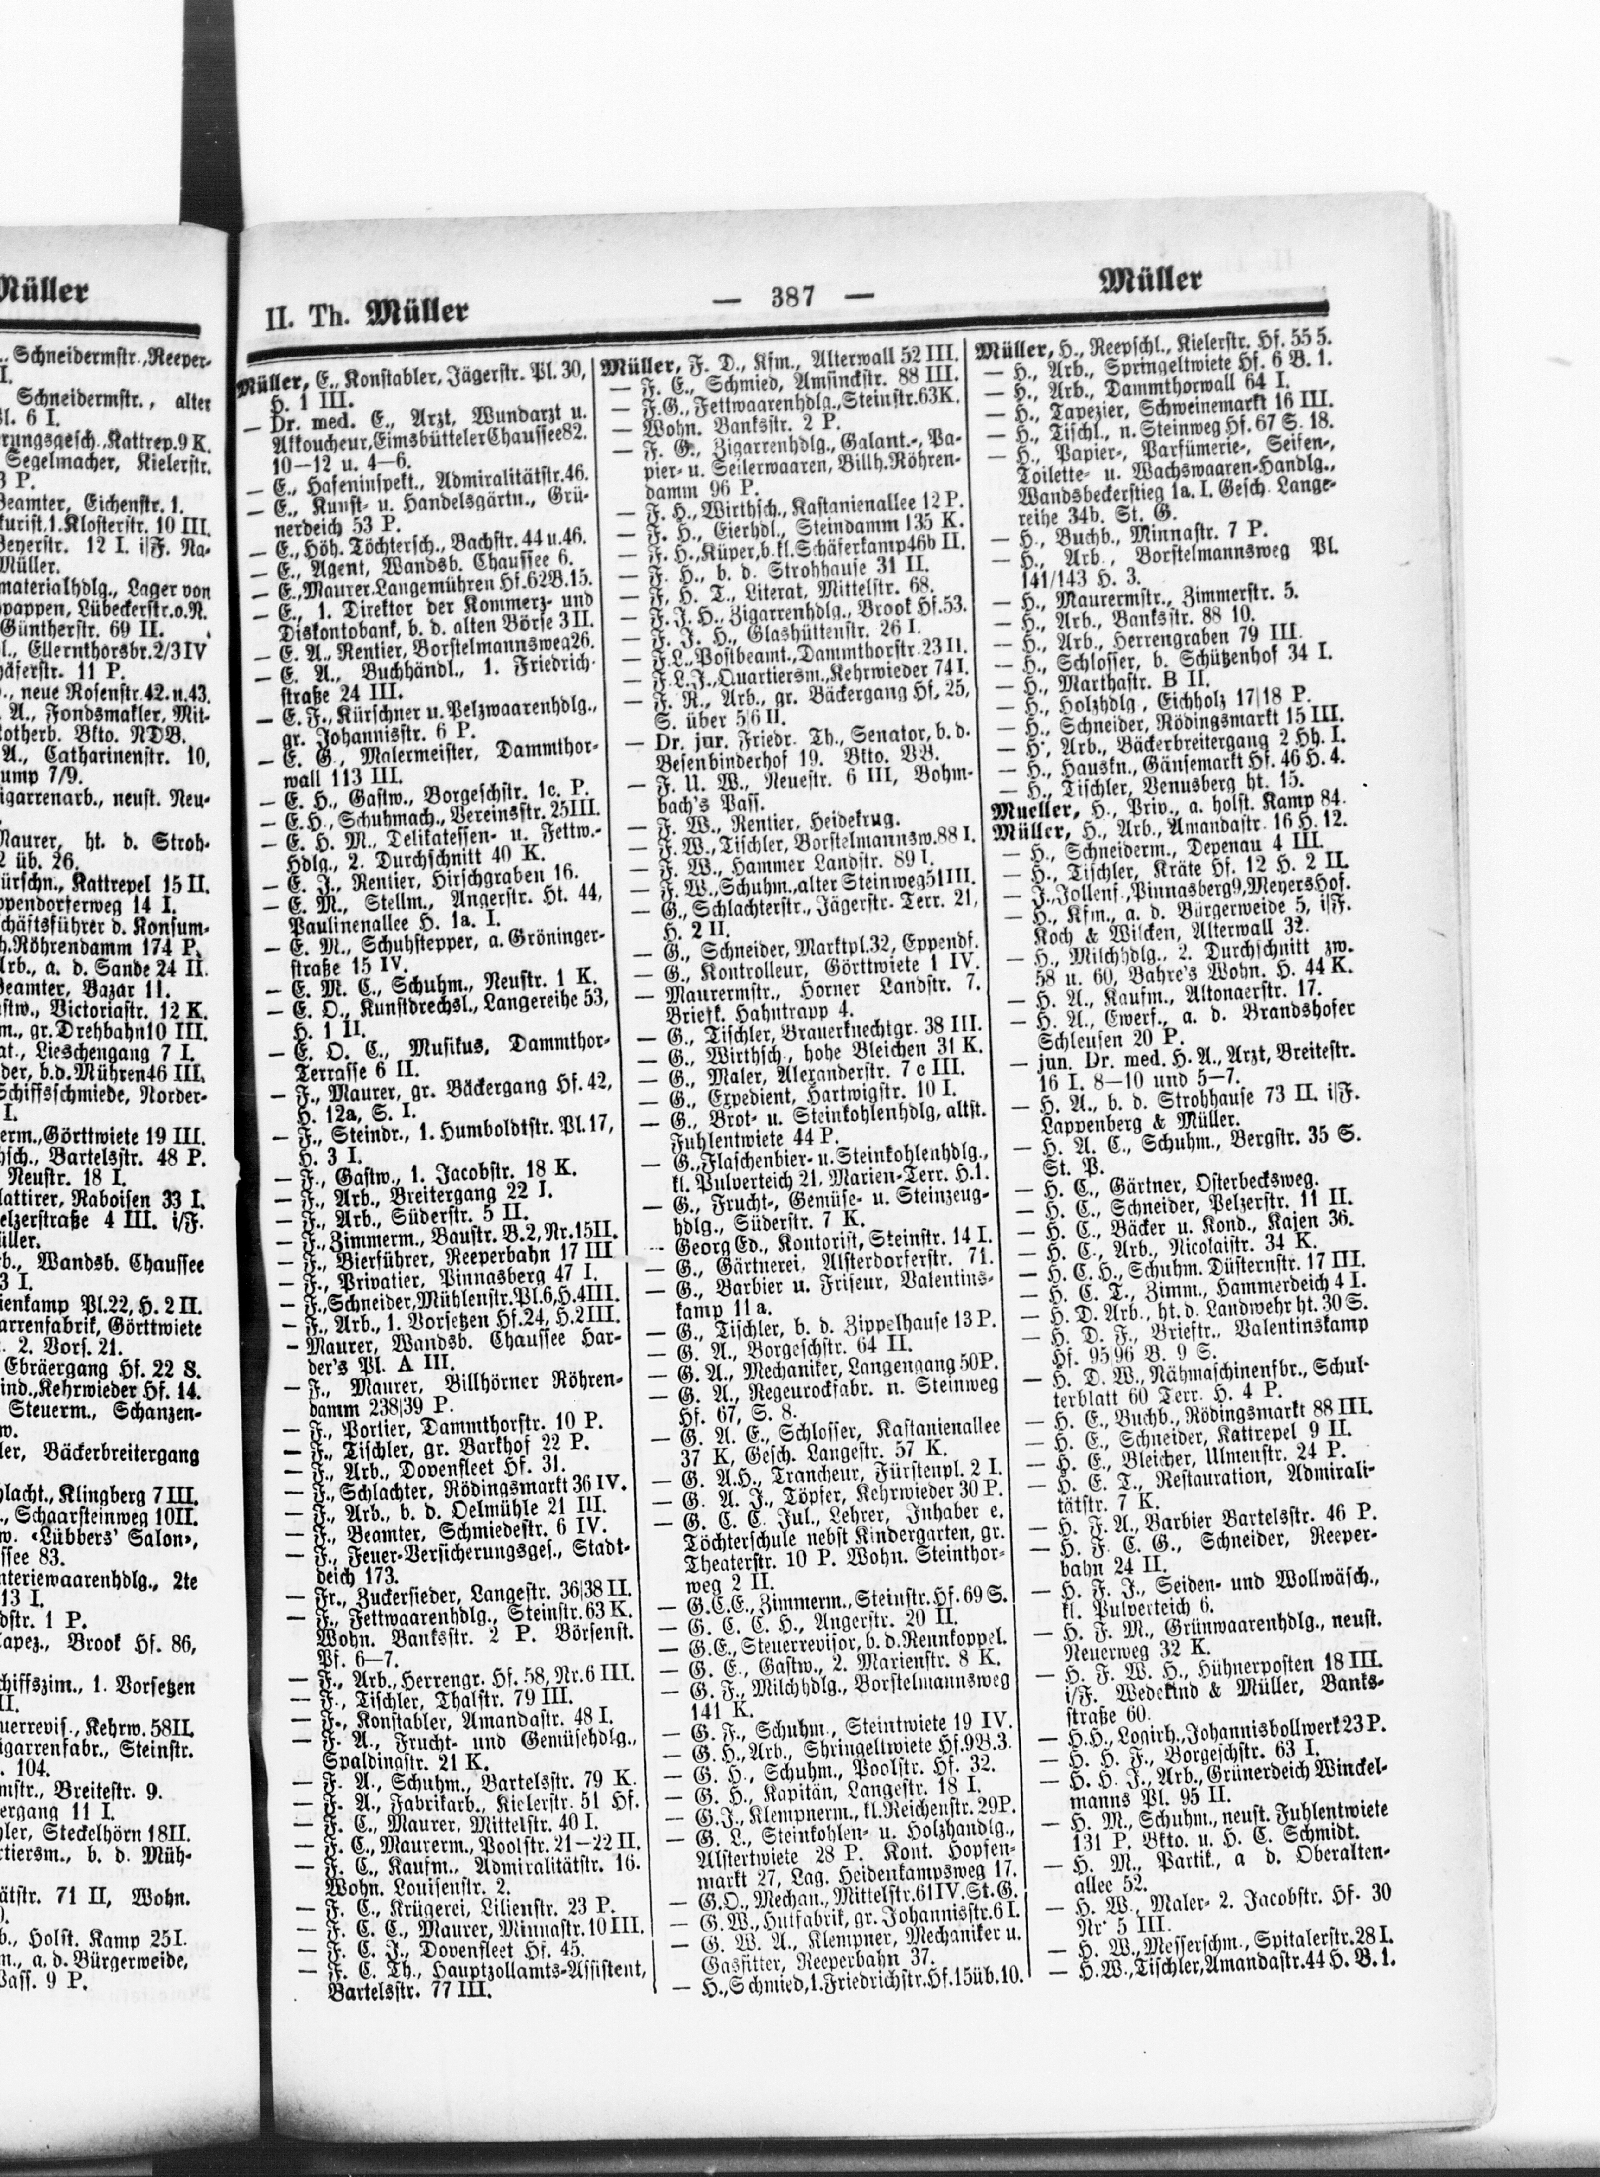 Müller
. Schneidermstr., Reeper-
I.
Schneidermstr., alter
Pl. 6 I.
erungsgesch., Kattrep. 9 K.
Segelmacher, Kielerstr.
3 P.
Beamter, Eichenstr. 1.
kurist, 1. Klosterstr. 10 III.
Beyerstr. 12 I. i/F. Na-
Müller.
materialhdlg., Lager von
ppappen, Lübeckerstr. o. N.
Güntherstr. 69 II.
l., Ellernthorsbr. 2/3 IV
häferstr. 11 P.
., neue Rosenstr. 42. u. 43.
. A., Fondsmakler, Mit-
Rotherb. Bkto. NDB.
A., Catharinenstr. 10,
ump 7/9.
igarrenarb., neust. Neu-
Maurer, ht. d. Stroh-
2 üb. 26.
ürschn., Kattrepel 15 II.
ppendorferweg 14 I.
chäftsführer d. Konsum-
h. Röhrendamm 174 P.
Arb., a. d. Sande 24 II.
Beamter, Bazar 11.
stw., Victoriastr. 12 K.
m., gr. Drehbahn 10 III.
at., Lieschengang 7 I.
der, b. d. Mühren 46 III.
Schiffsschmiede, Norder-
I.
erm., Görttwiete 19 III.
hsch., Bartelsstr. 48 P.
Neustr. 18 I.
lattirer, Raboisen 33 I.
elzerstraße 4 III. i/F.
üller.
rb., Wandsb. Chaussee
3 I.
ienkamp Pl. 22, H. 2 II.
arrenfabrik, Görttwiete
. 2. Vors. 21.
Ebräergang Hf. 22 S.
ind., Kehrwieder Hf. 14.
Steuerm., Schanzen-
w.
ler, Bäckerbreitergang
hlacht., Klingberg 7 III.
., Schaarsteinweg 10 II.
w. «Lübbers' Salon»,
ssee 83.
nteriewaarenhdlg., 2te
13 I.
dstr. 1 P.
Tapez., Brook Hf. 86,
chiffszim., 1. Vorsetzen
II.
uerrevis., Kehrw. 58 II.
igarrenfabr., Steinstr.
. 104.
mstr., Breitestr. 9.
ergang 11 I.
hler, Steckelhörn 18 II.
rtiersm., b. d. Müh-
ätstr. 71 II, Wohn.
b., Holst. Kamp 25 I.
m., a. d. Bürgerweide,
Pass. 9 P.
II. Th. Müller — 387 — Müller
Müller, E., Konstabler, Jägerstr. Pl. 30,
H. 1 III.
— Dr. med. E., Arzt, Wundarzt u.
Akkoucheur, Eimsbütteler Chaussee 82.
10—12 u. 4—6.
— E., Hafeninspekt., Admiralitätstr. 46.
— E., Kunst- u. Handelsgärtn., Grü-
nerdeich 53 P.
— E., Höh. Töchtersch., Bachstr. 44 u. 46.
— E., Agent, Wandsb. Chaussee 6.
— E., Maurer. Langemühren Hf. 62 B. 15.
— E., 1. Direktor der Kommerz- und
Diskontobank, b. d. alten Börse 3 II.
— E. A., Rentier, Borstelmannsweg 26.
— E. A., Buchhändl., 1. Friedrich-
straße 24 III.
— E. F., Kürschner u. Pelzwaarenhdlg.,
gr. Johannisstr. 6 P.
— E. G., Malermeister, Dammthor-
wall 113 III.
— E. H., Gastw., Borgeschstr. 1c. P.
— E. H., Schuhmach., Vereinsstr. 25 III.
— E. H. M., Delikatessen- u. Fettw.-
Hdlg., 2. Durchschnitt 40 K.
— E. J., Rentier, Hirschgraben 16.
— E. M., Stellm., Angerstr. Ht. 44,
Paulinenallee H. 1a. I.
— E. M., Schuhstepper, a. Gröninger-
straße 15 IV.
— E. M. C., Schuhm., Neustr. 1 K.
— E. O., Kunstdrechsl., Langereihe 53,
H. 1 II.
— E. O. C., Musikus, Dammthor-
Terrasse 6 II.
— F., Maurer, gr. Bäckergang Hf. 42,
H. 12a, S. I.
— F., Steindr., 1. Humboldtstr. Pl. 17,
H. 3 I.
— F., Gastw., 1. Jacobstr. 18 K.
— F., Arb., Breitergang 22 I.
— F., Arb., Süderstr. 5 II.
— F., Zimmerm., Baustr. B. 2, Nr. 15 II.
— F., Bierführer, Reeperbahn 17 III
— F., Privatier, Pinnasberg 47 I.
— F., Schneider, Mühlenstr. Pl. 6, H. 4 III.
— F., Arb., 1. Vorsetzen Hf. 24, H. 2 III.
— Maurer, Wandsb. Chaussee Har-
der's Pl. A III.
— F., Maurer, Billhörner Röhren-
damm 238/39 P.
— F., Portier, Dammthorstr. 10 P.
— F., Tischler, gr. Barkhof 22 P.
— F., Arb., Dovenfleet Hf. 31.
— F., Schlachter, Rödingsmarkt 36 IV.
— F., Arb., b. d. Oelmühle 21 III.
— F., Beamter, Schmiedestr. 6 IV.
— F., Feuer-Versicherungsges., Stadt-
deich 173.
— Fr., Zuckersieder, Langestr. 36/38 II.
— F., Fettwaarenhdlg., Steinstr. 63 K.
Wohn. Banksstr. 2 P. Börsenst.
Pf. 6—7.
— F., Arb., Herrengr. Hf. 58, Nr. 6 III.
— F., Tischler, Thalstr. 79 III.
— F., Konstabler, Amandastr. 48 I.
— F. A., Frucht- und Gemüsehdlg.,
Spaldingstr. 21 K.
— F. A., Schuhm., Bartelsstr. 79 K.
— F. A., Fabrikarb., Kielerstr. 51 Hf.
— F. C., Maurer, Mittelstr. 40 I.
— F. C., Maurerm., Poolstr. 21—22 II.
— F. C., Kaufm., Admiralitätstr. 16.
Wohn. Louisenstr. 2.
— F. C., Krügerei, Lilienstr. 23 P.
— F. C. C., Maurer, Minnastr. 10 III.
— F. C. J., Dovenfleet Hf. 45.
— F. C. Th., Hauptzollamts-Assistent,
Bartelsstr. 77 III.
Müller, F. D., Kfm., Alterwall 52 III.
— F. E., Schmied, Amsinckstr. 88 III.
— F. G., Fettwaarenhdlg., Steinstr. 63 K.
— Wohn. Banksstr. 2 P.
— F. G., Zigarrenhdlg., Galant.-, Pa-
pier- u. Seilerwaaren, Billh. Röhren-
damm 96 P.
— F. H., Wirthsch., Kastanienallee 12 P.
— F. H., Eierhdl., Steindamm 135 K.
— F. H., Küper, b. kl. Schäferkamp 46b II.
— F. H., b. d. Strohhause 31 II.
— F. H. T., Literat, Mittelstr. 68.
— F. J. H., Zigarrenhdlg., Brook Hf. 53.
— F. J. H., Glashüttenstr. 26 I.
— F. L., Postbeamt., Dammthorstr. 23 II.
— F. L. J., Quartiersm., Kehrwieder 74 I.
— F. R., Arb., gr. Bäckergang Hf. 25,
S. über 5/6 II.
— Dr. jur. Friedr. Th., Senator, b. d.
Besenbinderhof 19. Bkto. VB.
— F. U. W., Neuestr. 6 III, Bohm-
bach's Pass.
— F. W., Rentier, Heidekrug.
— F. W., Tischler, Borstelmannsw. 88 I.
— F. W., Hammer Landstr. 89 I.
— F. W., Schuhm., alter Steinweg 51 III.
— G., Schlachterstr., Jägerstr. Terr. 21,
H. 2 II.
— G., Schneider, Marktpl. 32, Eppendf.
— G., Kontrolleur, Görttwiete 1 IV.
— Maurermstr., Horner Landstr. 7.
Briefk. Hahntrapp 4.
— G., Tischler, Brauerknechtgr. 38 III.
— G., Wirthsch., hohe Bleichen 31 K.
— G., Maler, Alexanderstr. 7 c III.
— G., Expedient, Hartwigstr. 10 I.
— G., Brot- u. Steinkohlenhdlg, altst.
Fuhlentwiete 44 P.
— G., Flaschenbier- u. Steinkohlenhdlg.,
kl. Pulverteich 21, Marien-Terr. H. 1.
— G., Frucht-, Gemüse- u. Steinzeug-
hdlg., Süderstr. 7 K.
— Georg Ed., Kontorist, Steinstr. 14 I.
— G., Gärtnerei, Alsterdorferstr. 71.
— G., Barbier u. Friseur, Valentins-
kamp 11 a.
— G., Tischler, b. d. Zippelhause 13 P.
— G. A., Borgeschstr. 64 II.
— G. A., Mechaniker, Langengang 50 P.
— G. A., Regenrockfabr. n. Steinweg
Hf. 67, S. 8.
— G. A. E., Schlosser, Kastanienallee
37 K, Gesch. Langestr. 57 K.
— G. A. H., Trancheur, Fürstenpl. 2 I.
— G. A. J., Töpfer, Kehrwieder 30 P.
— G. C. C. Jul., Lehrer, Inhaber e.
Töchterschule nebst Kindergarten, gr.
Theaterstr. 10 P. Wohn. Steinthor-
weg 2 II.
— G. C. E., Zimmerm., Steinstr. Hf. 69 S.
— G. C. C. H., Angerstr. 20 II.
— G. E., Steuerrevisor, b. d. Rennkoppel.
— G. E., Gastw., 2. Marienstr. 8 K.
— G. F., Milchhdlg., Borstelmannsweg
141 K.
— G. F., Schuhm., Steintwiete 19 IV.
— G. H., Arb., Shringeltwiete Hf. 9 B. 3.
— G. H., Schuhm., Poolstr. Hf. 32.
— G. H., Kapitän, Langestr. 18 I.
— G. J., Klempnerm., kl. Reichenstr. 29 P.
— G. L., Steinkohlen- u. Holzhandlg.,
Alstertwiete 28 P. Kont. Hopfen-
markt 27, Lag. Heidenkampsweg 17.
— G. O., Mechan., Mittelstr. 61 IV. St. G.
— G. W., Hutfabrik, gr. Johannisstr. 6 I.
— G. W. A., Klempner, Mechaniker u.
Gasfitter, Reeperbahn 37.
— H., Schmied, 1. Friedrichstr. Hf. 15 üb. 10.
Müller, H., Reepschl., Kielerstr. Hf. 55 5.
— H., Arb., Springeltwiete Hf. 6 B. 1.
— H., Arb., Dammthorwall 64 I.
— H., Tapezier, Schweinemarkt 16 III.
— H., Tischl., n. Steinweg Hf. 67 S. 18.
— H., Papier-, Parfümerie-, Seifen-,
Toilette- u. Wachswaaren-Handlg.,
Wandsbeckerstieg 1a. I. Gesch. Lange-
reihe 34b. St. G.
— H., Buchb., Minnastr. 7 P.
— H., Arb., Borstelmannsweg Pl.
141/143 H. 3.
— H., Maurermstr., Zimmerstr. 5.
— H., Arb., Banksstr. 88 10.
— H., Arb., Herrengraben 79 III.
— H., Schlosser, b. Schützenhof 34 I.
— H., Marthastr. B II.
— H., Holzhdlg., Eichholz 17/18 P.
— H., Schneider, Rödingsmarkt 15 III.
— H., Arb., Bäckerbreitergang 2 Hh. I.
— H., Hauskn., Gänsemarkt Hf. 46 H. 4.
— H., Tischler, Venusberg ht. 15.
Mueller, H., Priv., a. holst. Kamp 84.
Müller, H., Arb., Amandastr. 16 H. 12.
— H., Schneiderm., Depenau 4 III.
— H., Tischler, Kräte Hf. 12 H. 2 II.
— J. Jollenf., Pinnasberg 9, Meyers Hof.
— H., Kfm., a. d. Bürgerweide 5, i/F.
Koch & Wilcken, Alterwall 32.
— H., Milchhdlg., 2. Durchschnitt zw.
58 u. 60, Bahre's Wohn. H. 44 K.
— H. A., Kaufm., Altonaerstr. 17.
— H. A., Ewerf., a. d. Brandshofer
Schleusen 20 P.
— jun. Dr. med. H. A., Arzt, Breitestr.
16 I. 8—10 und 5—7.
— H. A., b. d. Strohhause 73 II. i/F.
Lappenberg & Müller.
— H. A. C., Schuhm., Bergstr. 35 S.
St. P.
— H. C., Gärtner, Osterbecksweg.
— H. C., Schneider, Pelzerstr. 11 II.
— H. C., Bäcker u. Kond., Kajen 36.
— H. C., Arb., Nicolaistr. 34 K.
— H. C. H., Schuhm. Düsternstr. 17 III.
— H. C. T., Zimm., Hammerdeich 4 I.
— H. D. Arb., ht. d. Landwehr ht. 30 S.
— H. D. F., Briestr., Valentinskamp
Hf. 95 96 B. 9 S.
— H. D. W., Nähmaschinenfbr., Schul-
terblatt 60 Terr. H. 4 P.
— H. E., Buchb., Rödingsmarkt 88 III.
— H. E., Schneider, Kattrepel 9 II.
— H. E., Bleicher, Ulmenstr. 24 P.
— H. E. T., Restauration, Admirali-
tätstr. 7 K.
— H. F. A., Barbier Bartelsstr. 46 P.
— H. F. C. G., Schneider, Reeper-
bahn 24 II.
— H. F. J., Seiden- und Wollwäsch.,
kl. Pulverteich 6.
— H. F. M., Grünwaarenhdlg., neust.
Neuerweg 32 K.
— H. F. W. H., Hühnerposten 18 III.
i/F. Wedekind & Müller, Banks-
straße 60.
— H. H., Logirh., Johannisbollwerk 23 P.
— H. H. F., Borgeschstr. 63 I.
— H. H. J., Arb., Grünerdeich Winckel-
manns Pl. 95 II.
— H. M., Schuhm., neust. Fuhlentwiete
131 P. Bkto. u. H. C. Schmidt.
— H. M., Partik., a d. Oberalten-
allee 52.
— H. W., Maler- 2. Jacobstr. Hf. 30
Nr. 5 III.
— H. W., Messerschm., Spitalerstr. 28 I.
— H. W., Tischler, Amandastr. 44 H. B. 1.